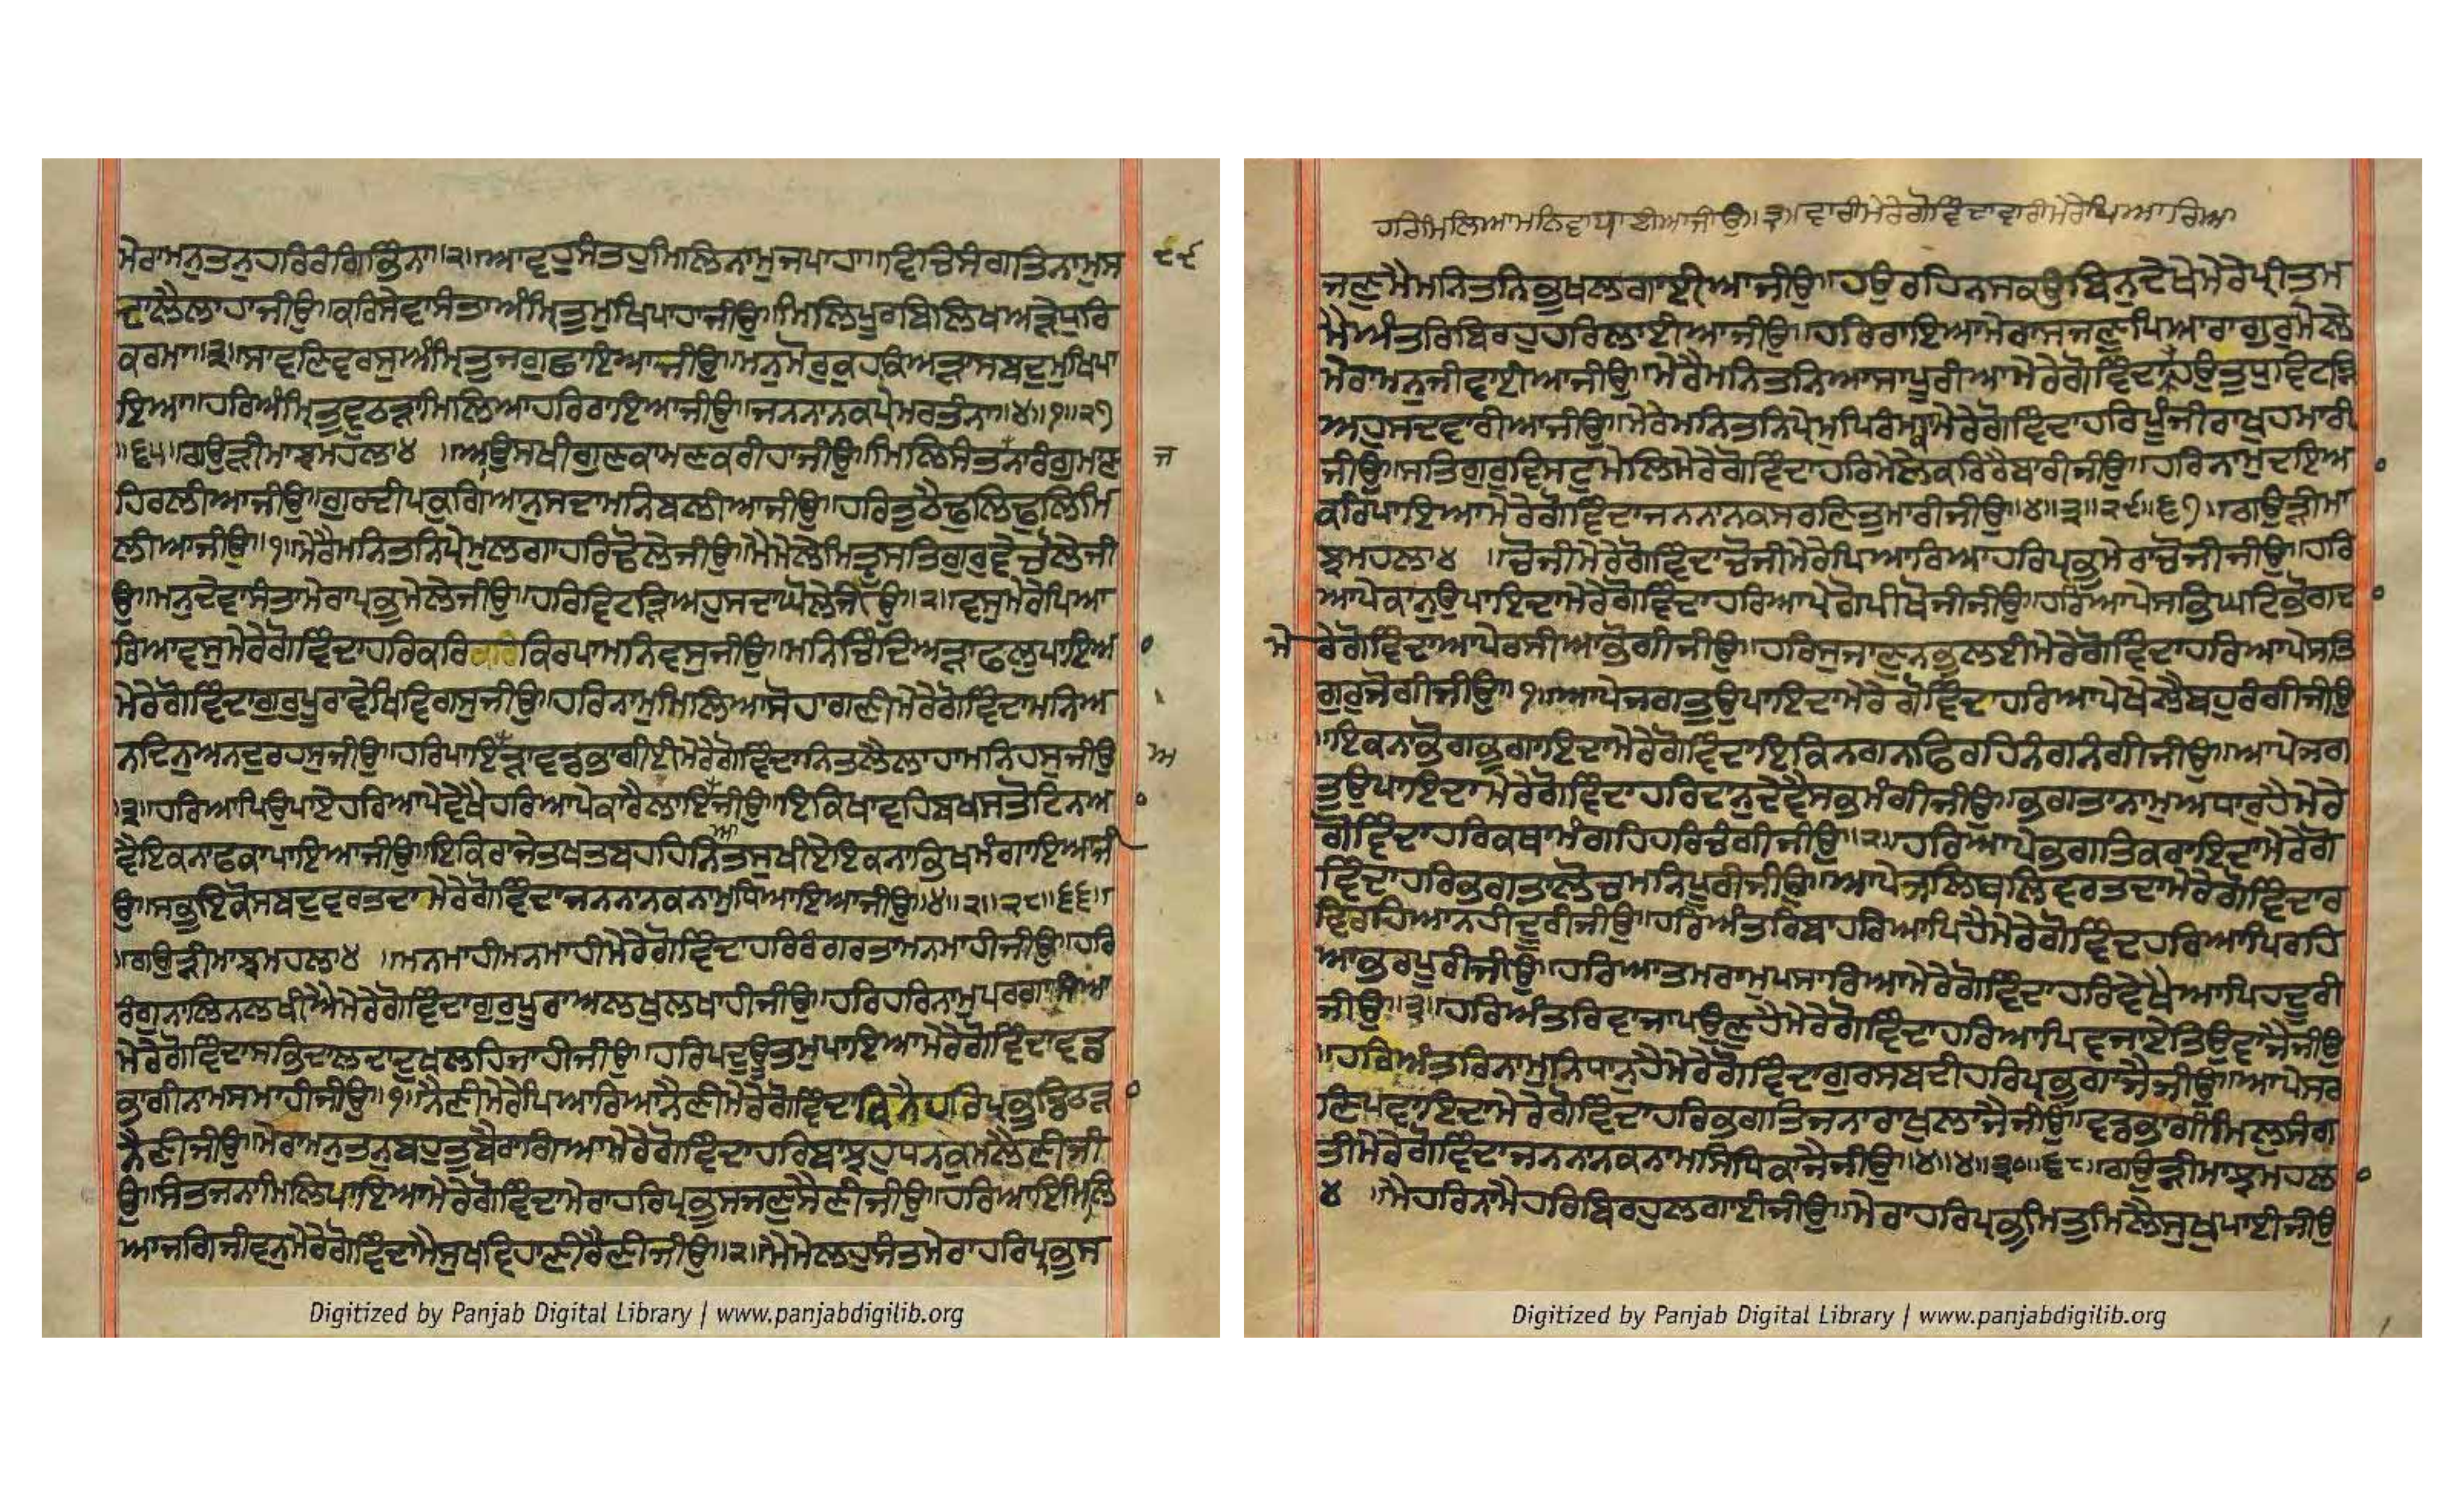 ਮੇਰਾਮਨੁਤਨੁਹਰਿਰੰਗਿਭਿੰਨਾ॥੨॥ਆਵਹੁਸੰਤਹੁਮਿਲਿਨਾਮੁਜਪਾਹਾ॥ਵਿਚਿਸੰਗਤਿਨਾਮੁਸ
ਦਾਲੈਲਾਹਾਜੀਉ॥ਕਰਿਸੇਵਾਸੰਤਾਅੰਮ੍ਰਿਤੁਮੁਖਿਪਾਹਾਜੀਉ॥ਮਿਲਿਪੂਰਬਿਲਿਖਿਅੜੇਧੁਰਿ
ਕਰਮਾ॥੩॥ਸਾਵਣਿਵਰਸੁਅੰਮ੍ਰਿਤੁਜਗੁਛਾਇਆਜੀਉ॥ਮਨੁਮੋਰੁਕੁਹਕਿਅੜਾਸਬਦੁਮੁਖਿਪਾ
ਇਆ॥ਹਰਿਅੰਮ੍ਰਿਤੁਵੁਠੜਾਮਿਲਿਆਹਰਿਰਾਇਆਜੀਉ॥ਜਨਨਾਨਕਪ੍ਰੇਮਰਤੰਨਾ॥੪॥੧॥੨੭
॥੬੫॥ਗਉੜੀਮਾਝਮਹਲਾ੪ ॥ਆਉਸਖੀਗੁਣਕਾਮਣਕਰੀਹਾਜੀਉ॥ਮਿਲਿਸੰਤਨਾਰੰਗੁਮਾਣ
ਹਿਰਲੀਆਜੀਉ॥ਗੁਰਦੀਪਕੁਗਿਆਨੁਸਦਾਮਨਿਬਲੀਆਜੀਉ॥ਹਰਿਤੁਠੈਢੁਲਿਢੁਲਿਮਿ
ਲੀਆਜੀਉ॥੧॥ਮੇਰੈਮਨਿਤਨਿਪ੍ਰੇਮੁਲਗਾਹਰਿਢੋਲੇਜੀਉ॥ਮੈਮੇਲੇਮਿਤ੍ਰੁਸਤਿਗੁਰੁਵੇਚੋਲੇਜੀ
ਉ॥ਮਨੁਦੇਵਾਸੰਤਾਮੇਰਾਪ੍ਰਭੁਮੇਲੇਜੀਉ॥ਹਰਿਵਿਟੜਿਅਹੁਸਦਾਘੋਲੇਜੀਉ॥੨॥ਵਸੁਮੇਰੇਪਿਆ
ਰਿਆਵਸੁਮੇਰੇਗੋਵਿੰਦਾਹਰਿਕਰਿਕਿਰਪਾਮਨਿਵਸੁਜੀਉ॥ਮਨਿਚਿੰਦਿਅੜਾਫਲੁਪਾਇਅ
ਮੇਰੇਗੋਵਿੰਦਾਗੁਰੁਪੂਰਾਵੇਖਿਵਿਗਸੁਜੀਉ॥ਹਰਿਨਾਮੁਮਿਲਿਆਸੋਹਾਗਣੀਮੇਰੇਗੋਵਿੰਦਾਮਨਿਅ
ਨਦਿਨੁਅਨਦੁਰਹਸੁਜੀਉ॥ਹਰਿਪਾਇੜਾਵਡਭਾਗੀਈਮੇਰੇਗੋਵਿੰਦਾਨਿਤਲੈਲਾਹਾਮਨਿਹਸੁਜੀਉ
੩॥ਹਰਿਆਪਿਉਪਾਏਹਰਿਆਪੇਵੇਖੈਹਰਿਆਪੇਕਾਰੈਲਾਇਜੀਉ॥ਇਕਿਖਾਵਹਿਬਖਸਤੋਟਿਨਅ
ਵੈਇਕਨਾਫਕਾਪਾਇਆਜੀਉ॥ਇਕਿਰਾਜੇਤਖਤਬਹਹਿਨਿਤਸੁਖੀਏਇਕਨਾਭਿਖਮੰਗਾਇਆਜੀ
ਉ॥ਸਭੁਇਕੋਸਬਦੁਵਰਤਦਾਮੇਰੇਗੋਵਿੰਦਾਜਨਨਾਨਕਨਾਮੁਧਿਆਇਆਜੀਉ॥੪॥੨॥੨੮॥੬੬॥
॥ਗਉੜੀਮਾਝਮਹਲਾ੪ ॥ਮਨਮਾਹੀਮਨਮਾਹੀਮੇਰੇਗੋਵਿੰਦਾਹਰਿਰੰਗਿਰਤਾਮਨਮਾਹੀਜੀਉ॥ਹਰਿ
ਰੰਗੁਨਾਲਿਨਲਖੀਐਮੇਰੇਗੋਵਿੰਦਾਗੁਰੁਪੂਰਾਅਲਖੁਲਖਾਹੀਜੀਉ॥ਹਰਿਹਰਿਨਾਮੁਪਰਗਾਸਿਆ
ਮੇਰੇਗੋਵਿੰਦਾਸਭਿਦਾਲਦਦੁਖਲਹਿਜਾਹੀਜੀਉ॥ਹਰਿਪਦੁਊਤਮੁਪਾਇਆਮੇਰੇਗੋਵਿੰਦਾਵਡ
ਭਾਗੀਨਾਮਸਮਾਹੀਜੀਉ॥੧॥ਨੈਣੀਮੇਰੇਪਿਆਰਿਆਨੈਣੀਮੇਰੇਗੋਵਿੰਦਾਕਿਨੈਹਰਿਪ੍ਰਭੁਡਿਠੜ
ਨੈਣੀਜੀਉ॥ਮੇਰਾਮਨੁਤਨੁਬਹੁਤੁਬੈਰਾਗਿਆਮੇਰੇਗੋਵਿੰਦਾਹਰਿਬਾਝਹੁਧਨਕੁਮਲੈਣੀਜੀ
ਉ॥ਸੰਤਜਨਾਮਿਲਿਪਾਇਆਮੇਰੇਗੋਵਿੰਦਾਮੇਰਾਹਰਿਪ੍ਰਭੁਸਜਣੁਸੈਣੀਜੀਉ॥ਹਰਿਆਇਮਿਲਿ
ਆਜਗਿਜੀਵਨੁਮੇਰੇਗੋਵਿੰਦਾਮੈਸੁਖਵਿਹਾਣੀਰੈਣੀਜੀਉ॥੨॥ਮੈਮੇਲਹੁਸੰਤਮੇਰਾਹਰਿਪ੍ਰਭੁਸ
੯੯
ਜ
ਅ
Digitized by Panjab Digital Library | www.panjabdigilib.org
ਹਰਿਮਿਲਿਆਮਨਿਵਾਧਾਈਆਜੀਉ॥੩॥ਵਾਰੀਮੇਰੇਗੋਵਿੰਦਾਵਾਰੀਮੇਰੇਪਿਆਰਿਆ
ਜਣੁਮੈਮਨਿਤਨਿਭੁਖਲਗਾਈਆਜੀਉ॥ਹਉਰਹਿਨਸਕਉਬਿਨੁਦੇਖੇਮੇਰੇਪ੍ਰੀਤਮ
ਮੈਅੰਤਰਿਬਿਰਹੁਹਰਿਲਾਈਆਜੀਉ॥ਹਰਿਰਾਇਆਮੇਰਾਸਜਣੁਪਿਆਰਾਗੁਰੁਮੇਲੇ
ਮੇਰਾਮਨੁਜੀਵਾਈਆਜੀਉ॥ਮੇਰੈਮਨਿਤਨਿਆਸਾਪੂਰੀਆਮੇਰੇਗੋਵਿੰਦਾਹਉਤੁਧੁਵਿਟੜਿ
ਅਹੁਸਦਵਾਰੀਆਜੀਉ॥ਮੇਰੇਮਨਿਤਨਿਪ੍ਰੇਮੁਪਿਰੰਮਮੇਰੇਗੋਵਿੰਦਾਹਰਿਪੂੰਜੀਰਾਖੁਹਮਾਰੀ
ਜੀਉ॥ਸਤਿਗੁਰੁਵਿਸਟੁਮੇਲਿਮੇਰੇਗੋਵਿੰਦਾਹਰਿਮੇਲੇਕਰਿਰੈਬਾਰੀਜੀਉ॥ਹਰਿਨਾਮੁਦਇਅ
ਕਰਿਪਾਇਆਮੇਰੇਗੋਵਿੰਦਾਜਨਨਾਨਕਸਰਣਿਤੁਮਾਰੀਜੀਉ॥੪॥੩॥੨੯॥੬੭॥ਗਉੜੀਮਾ
ਝਮਹਲਾ੪ ॥ਚੋਜੀਮੇਰੇਗੋਵਿੰਦਾਚੋਜੀਮੇਰੇਪਿਆਰਿਆਹਰਿਪ੍ਰਭੁਮੇਰਾਚੋਜੀਜੀਉ॥ਹਰਿ
ਆਪੇਕਾਨੁਉਪਾਇਦਾਮੇਰੇਗੋਵਿੰਦਾਹਰਿਆਪੇਗੋਪੀਖੋਜੀਜੀਉ॥ਹਰਿਆਪੇਸਭਿਘਟਿਭੋਗਦ
ਮੇਰੇਗੋਵਿੰਦਾਆਪੇਰਸੀਆਭੋਗੀਜੀਉ॥ਹਰਿਸੁਜਾਣੁਨਭੁਲਈਮੇਰੇਗੋਵਿੰਦਾਹਰਿਆਪੇਸਤਿ
ਗੁਰੁਜੋਗੀਜੀਉ॥੧॥ਆਪੇਜਗਤੁਉਪਾਇਦਾਮੇਰੇਗੋਵਿੰਦਾਹਰਿਆਪੇਖੇਲੈਬਹੁਰੰਗੀਜੀਉ
॥ਇਕਨਾਭੋਗਭੁਗਾਇਦਾਮੇਰੇਗੋਵਿੰਦਾਇਕਿਨਗਨਫਿਰਹਿਨੰਗਨੰਗੀਜੀਉ॥ਆਪੇਜਗ
ਤੁਉਪਾਇਦਾਮੇਰੇਗੋਵਿੰਦਾਹਰਿਦਾਨੁਦੇਵੈਸਭੁਮੰਗੀਜੀਉ॥ਭਗਤਾਨਾਮੁਅਧਾਰੁਹੈਮੇਰੇ
ਗੋਵਿੰਦਾਹਰਿਕਥਾਮੰਗਹਿਹਰਿਚੰਗੀਜੀਉ॥੨॥ਹਰਿਆਪੇਭਗਤਿਕਰਾਇਦਾਮੇਰੇਗੋ
ਵਿੰਦਾਹਰਿਭਗਤਾਲੋਚਮਨਿਪੂਰੀਜੀਉ॥ਆਪੇਜਲਿਥਲਿਵਰਤਦਾਮੇਰੇਗੋਵਿੰਦਾਰ
ਵਿਰਹਿਆਨਹੀਦੂਰੀਜੀਉ॥ਹਰਿਅੰਤਰਿਬਾਹਰਿਆਪਿਹੈਮੇਰੇਗੋਵਿੰਦਹਰਿਆਪਿਰਹਿ
ਆਭਰਪੂਰੀਜੀਉ॥ਹਰਿਆਤਮਰਾਮੁਪਸਾਰਿਆਮੇਰੇਗੋਵਿੰਦਾਹਰਿਵੇਖੈਆਪਿਹਦੂਰੀ
ਜੀਉ॥੩॥ਹਰਿਅੰਤਰਿਵਾਜਾਪਉਣੁਹੈਮੇਰੇਗੋਵਿੰਦਾਹਰਿਆਪਿਵਜਾਏਤਿਉਵਾਜੈਜੀਉ
॥ਹਰਿਅੰਤਰਿਨਾਮੁਨਿਧਾਨੁਹੈਮੇਰੇਗੋਵਿੰਦਾਗੁਰਸਬਦੀਹਰਿਪ੍ਰਭੁਗਾਜੈਜੀਉ॥ਆਪੇਸਰ
ਣਿਪਵਾਇਦਾਮੇਰੇਗੋਵਿੰਦਾਹਰਿਭਗਤਿਜਨਾਰਾਖੁਲਾਜੈਜੀਉ॥ਵਡਭਾਗੀਮਿਲੁਸੰਗ
ਤੀਮੇਰੇਗੋਵਿੰਦਾਜਨਨਾਨਕਨਾਮਸਿਧਿਕਾਜੈਜੀਉ॥੪॥੪॥੩੦॥੬੮॥ਗਉੜੀਮਾਝਮਹਲ
੪ ॥ਮੈਹਰਿਨਾਮੈਹਰਿਬਿਰਹੁਲਗਾਈਜੀਉ॥ਮੇਰਾਹਰਿਪ੍ਰਭੁਮਿਤੁਮਿਲੈਸੁਖੁਪਾਈਜੀਉ
Digitized by Panjab Digital Library | www.panjabdigilib.org